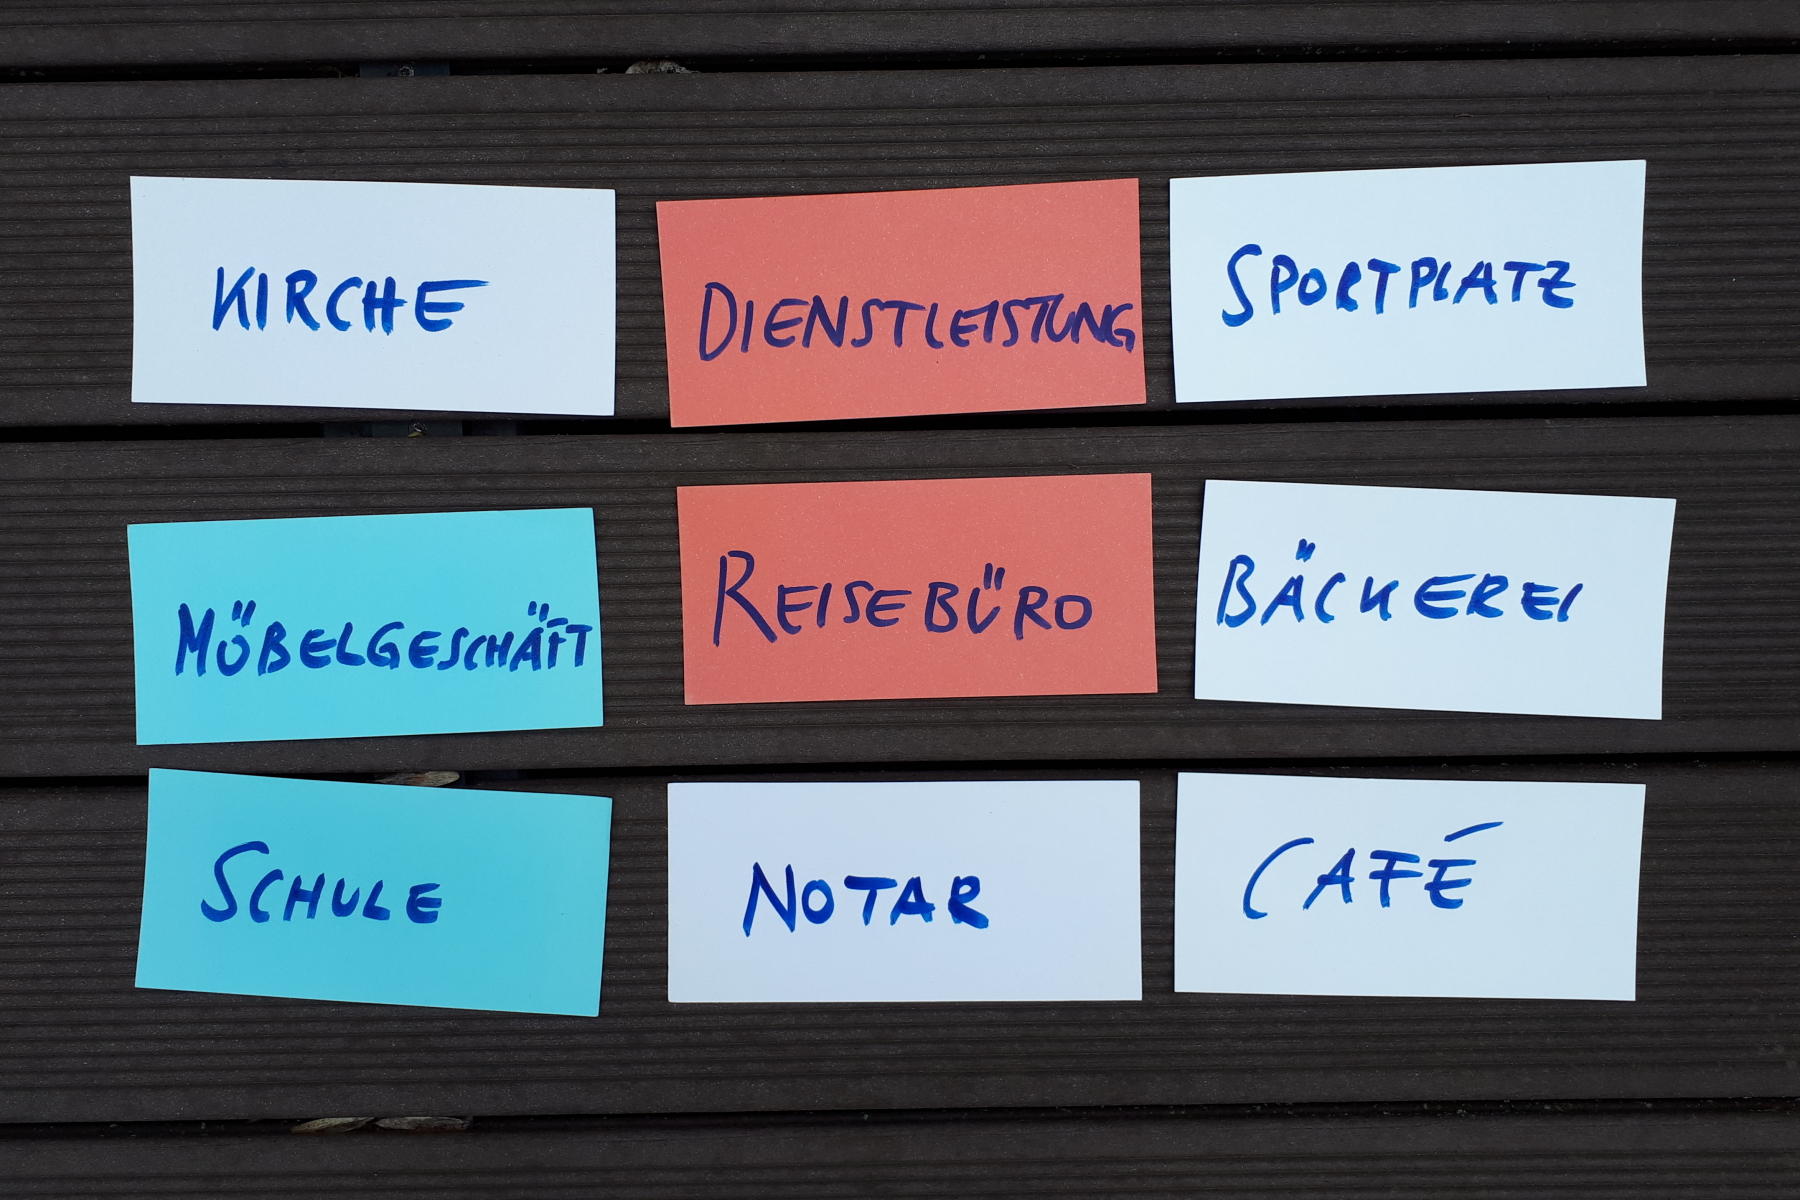 KIRCHE
DIENSTLEISTUNG
SPORTPLATZ
MÖBELGESCHÄFT
REISEBÜRO
BÄCKEREI
SCHULE
NOTAR
CAFÉ